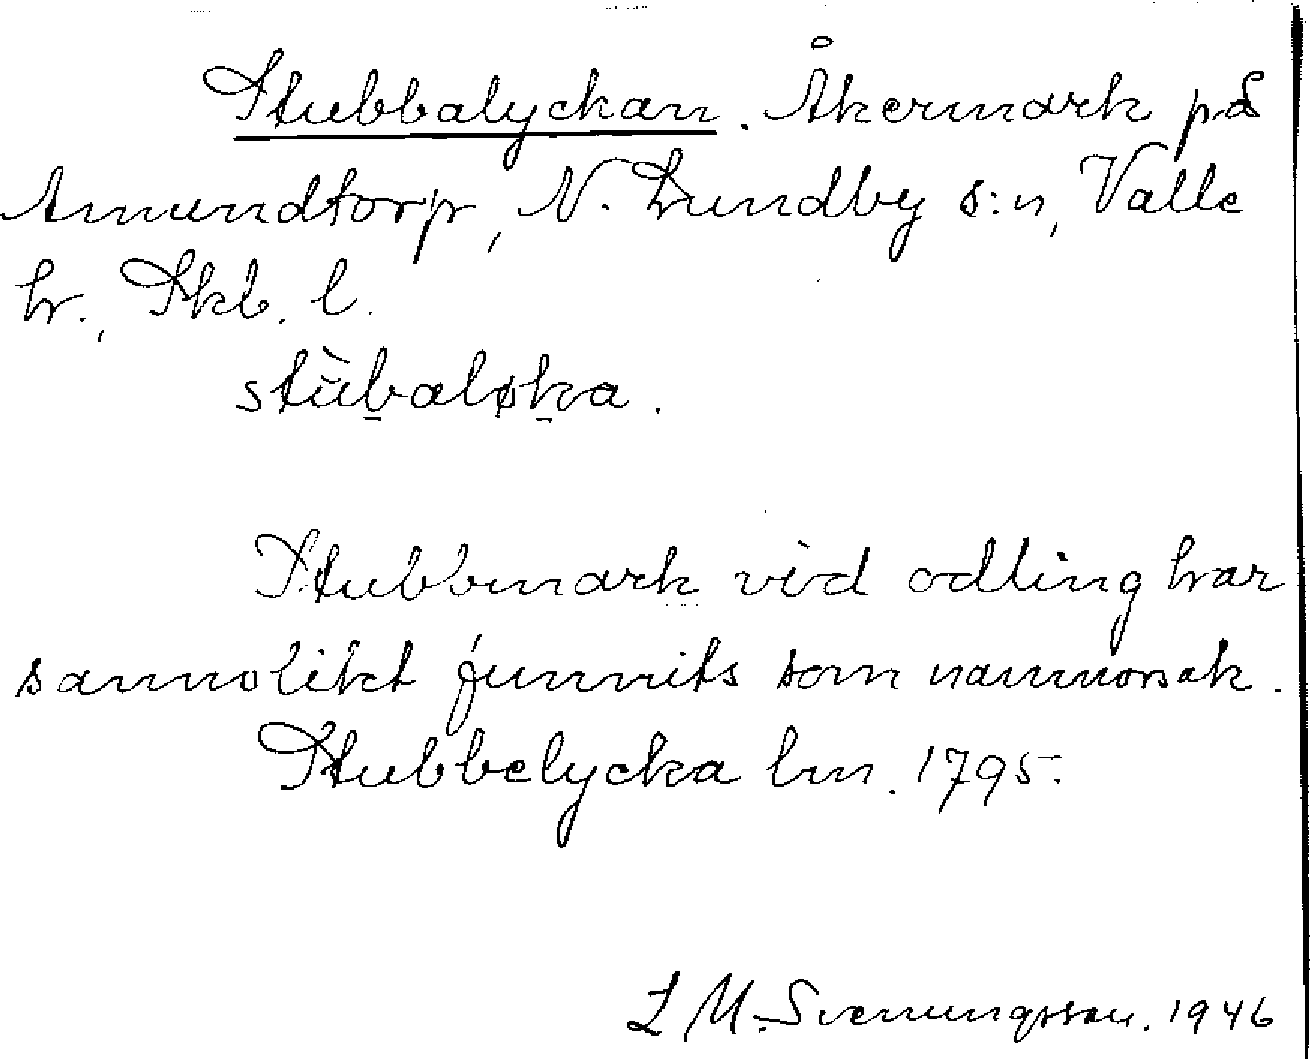 Stubbalyckan. Åkermark på
Amundtorp, N. Lundby s:n, Valle
hr., Skb. l.
stùb̲aløk̲a.
Stubbmark vid odling har
sannolikt funnits som namnorsak.
Stubbelycka lm. 1795.
L M. Svenungsson. 1946